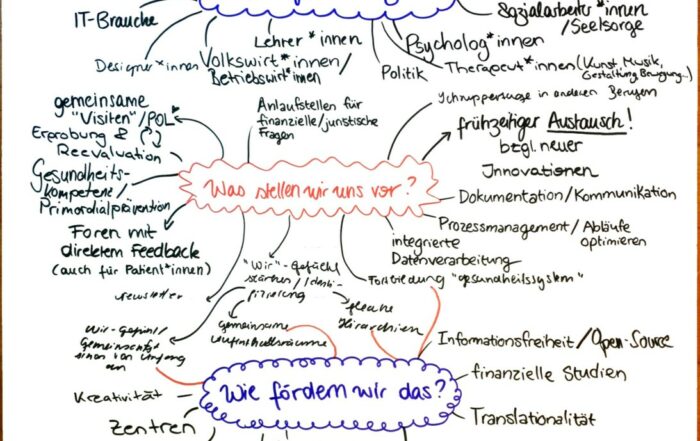 IT-Branche
Designer*innen
Volkswirt*innen/
Betriebswirt*innen
Lehrer*innen
Psycholog*innen
Politik
Sozialarbeiter*innen
/Seelsorge
Therapeut*innen (Kunst, Musik,
Gestaltung, Bewegung...)
gemeinsame
"Visiten"/POL
Erprobung &
Reevaluation
Gesundheits-
kompetenz/
Primordialprävention
Foren mit
direktem Feedback
(auch für Patient*innen)
Anlaufstellen für
finanzielle/juristische
Fragen
Schnuppertage in anderen Berufen
frühzeitiger Austausch!
bzgl. neuer
Innovationen
Was stellen wir uns vor?
Dokumentation/Kommunikation
Prozessmanagement/Abläufe
optimieren
integrierte
Datenverarbeitung
Fortbildung "Gesundheitssystem"
"Wir"-Gefühl
stärken/Identi-
fizierung
newsletter
flache
Hierarchien
gemeinsame
Aufenthaltsräume
Wir-Gefühl/
Gemeinschafts
sinn von Anfang
an
Informationsfreiheit/Open-Source
Wie fördern wir das?
finanzielle Studien
Kreativität
Translationalität
Zentren